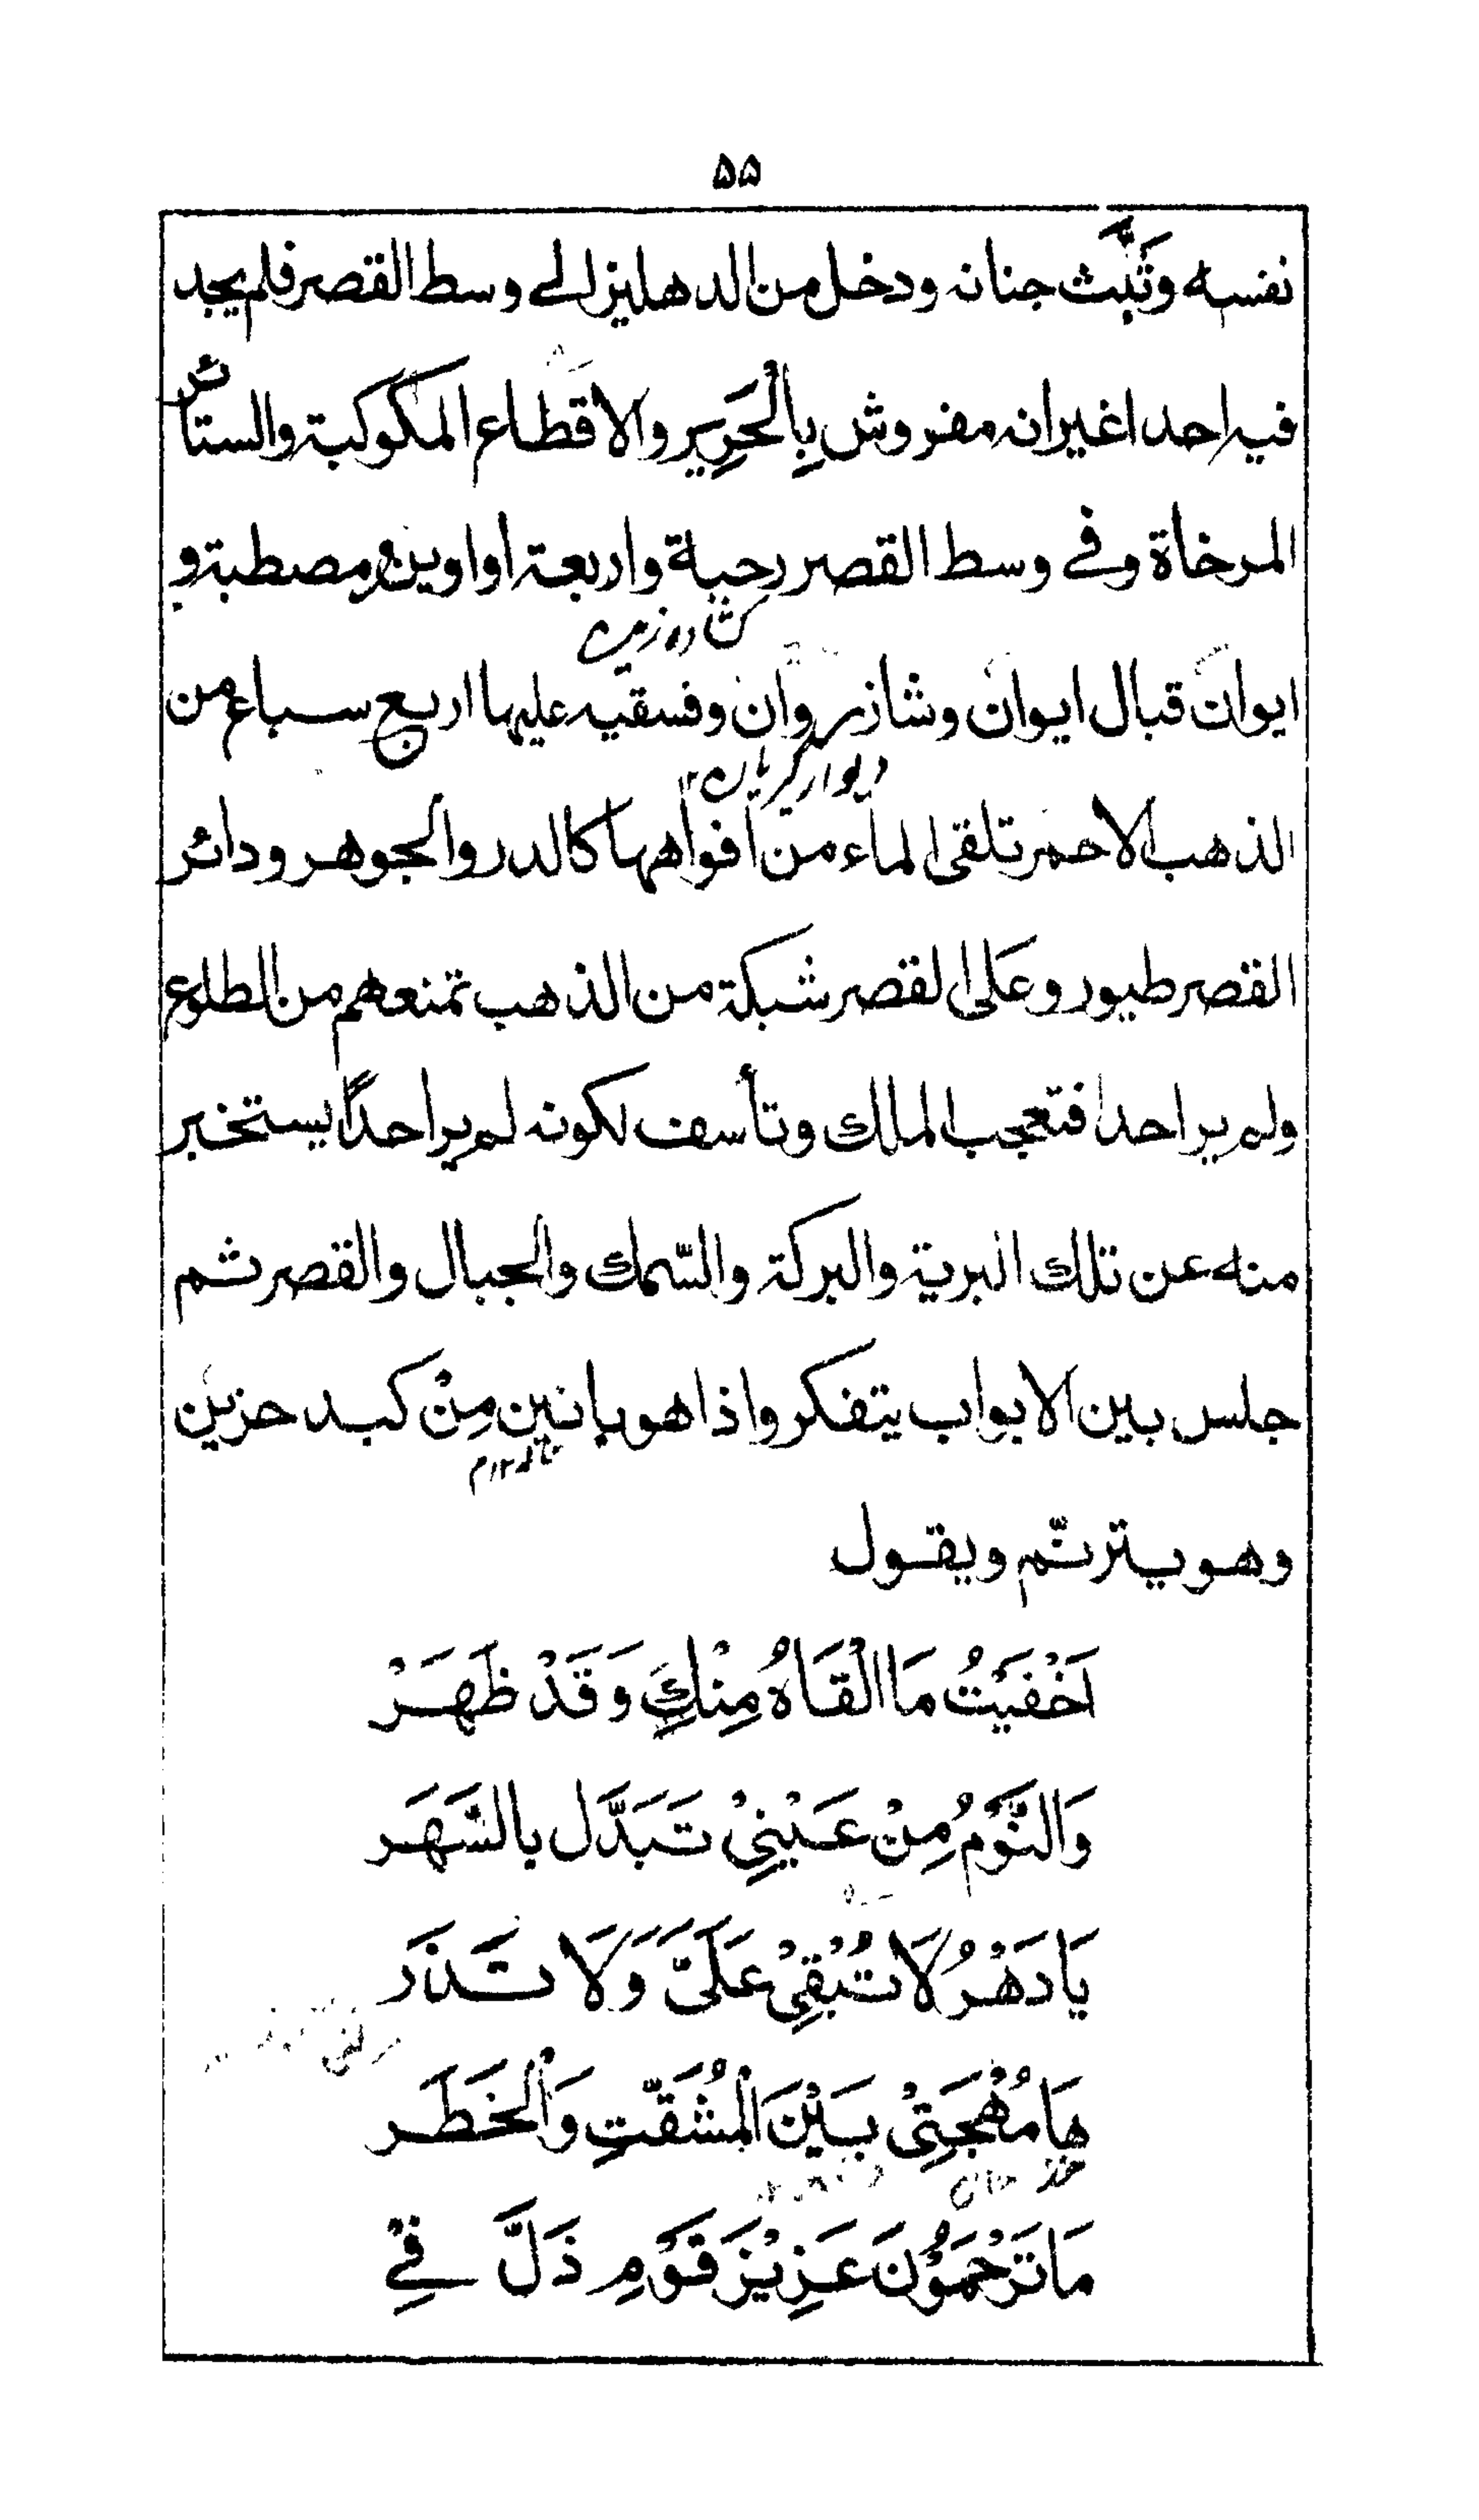 ۵۵
نفسه وثَبَّت جنانه ودخل من الدهليز الى وسط القصر فلم يجد
فيه احدا غير انه مفروش بِالْحَرِيرِ والاقطاع المكوكبة والستائر
المرخاة وفى وسط القصر رحبة واربعة اواوين ومصطبة و
ايوان قبال ايوان وشاذروان وفسقيه عليها اربع سباع من
الذهب الاحمر تلقى الماء من افواهها كالدر والجوهر ودائر
القصر طيور وعَلى القصر شبكة من الذهب تمنعهم من الطلوع
ولم ير احدا فتعجب الملك وتأسف لكونه لم ير احداً يستخبر
منه عن تلك البرية والبركة والسّمك والجبال والقصر ثم
جلس بين الابواب يتفكر واذا هو بانين مِنْ كبد حزين
وهو يترنّم ويقول
اَخْفَيْتُ مَا الْقَاهُ مِنْكِ وَقَدْ ظَهَرْ
وَالنَّوْمُ مِنْ عَيْنِيْ تَبَدَّل بالسَّهَر
يَا دَهْرُ لَا تُبْقِيْ عَلَىَّ وَلَا تَذَر
هَا مُهْجَتِىْ بَيْنَ الْمُشَقَّتِ وَالْخَطَر
مَا تَرْحَمُوْنَ عَزِيْزَ قَوْمٍ ذَلَّ فِيْ